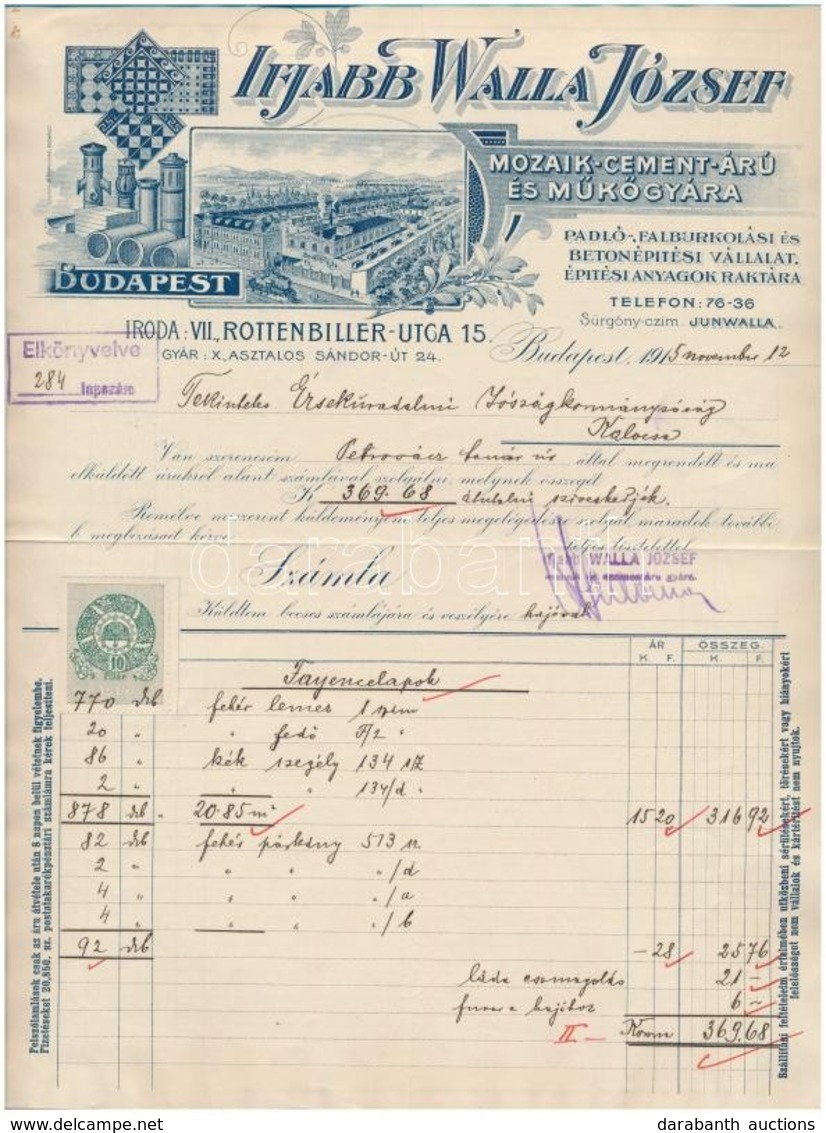 IFJABB WALLA JÓZSEF
MOZAIK-CEMENT-ÁRÚ
ÉS MŰKŐGYÁRA
PADLÓ-, FALBURKOLÁSI ÉS
BETONÉPITÉSI VÁLLALAT.
ÉPITÉSI ANYAGOK RAKTÁRA
BUDAPEST
TELEFON: 76-36
Sürgöny-czim JUNWALLA.
IRODA: VII., ROTTENBILLER-UTCA 15.
GYÁR: X., ASZTALOS SÁNDOR-ÚT 24.
Budapest, 1915 november 12
Elkönyvelve
284
Tekintetes Érsekuradalmi Jószágkormányzóság
Kalocsa
Van szerencsém Petrovácz tanár úr által megrendelt és ma
elküldött árukról alant számlával szolgálni, melynek összegét
K 369.68 átutalni szíveskedjék.
Remélve miszerint küldeményem teljes megelégedésre szolgál, maradok további
b. megbizásait kérve
teljes tisztelettel
WALLA JÓZSEF
Számla
Küldtem becses számlájára és veszélyére hajóval
10
ÁR ÖSSZEG.
K. F. K. F.
Fayencelapok
770 drb fehér lemes 1
20 " " fedő F/2 "
86 " kék szegély 134
2 " " " 134/d "
878 drb 20.85 m² 15 20 316 92
82 drb fehér párkány 513
2 " " " "/d
4 " " " "/a
4 " " " "/b
92 drb - 28 25 76
láda csomagolás 21 -
fuvar a hajóhoz 6 -
II Korona 369.68
Felszólamlások csak az áru átvétele után 8 napon belül vétetnek figyelembe.
Fizetéseket 20,850. sz. postatakarékpénztári számlámra kérek teljesíteni.
Szállítási feltételeim értelmében utközbeni sérülésekért, törésekért vagy hiányokért
felelősséget nem vállalok és kártérítést nem nyujtok.
darabanth
delcampe.net
darabanth auctions